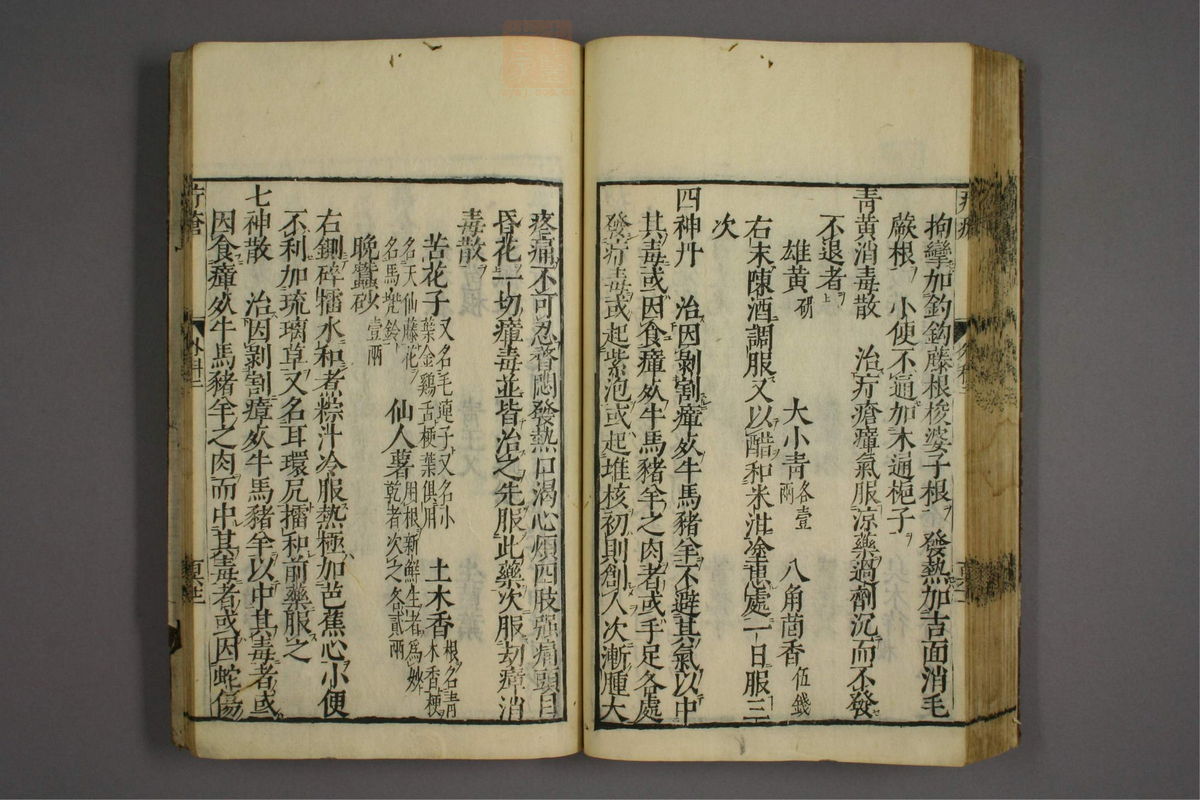 拘攣加釣鈎藤根梭婆子根　發熱加吉面消毛
蕨根　小便不通加木通梔子
青黃消毒散　治疔瘡瘴氣服涼藥過劑沉而不發
不退者
雄黃研　大小青各壹兩　八角茴香伍錢
右末陳酒調服又以醋和米泔塗患處一日服三
次
四神丹　治因剝割瘴死牛馬豬羊不避其氣以中
其毒或因食瘴死牛馬豬羊之肉者或手足各處
發疔毒或起紫泡或起堆核初則創入次漸腫大
疼痛不可忍瞀悶發熱口渴心煩四肢強痛頭目
昏花一切瘴毒並皆治之先服此藥次服刼瘴消
毒散
苦花子又名毛蓮子又名小葉金鷄舌梗葉俱用　土木香根名青木香梗
名天仙藤花名馬兠鈴　仙人薯用根新鮮生者為妙乾者次之各貳兩
晩蠶砂壹兩
右𠜾碎擂水和煮粽汁冷服熱極加芭蕉心小便
不利加琉璃草又名耳環尼擂和前藥服之
七神散　治因剝割瘴死牛馬豬羊以中其毒者或
因食瘴死牛馬豬羊之肉而中其毒者或因蛇傷